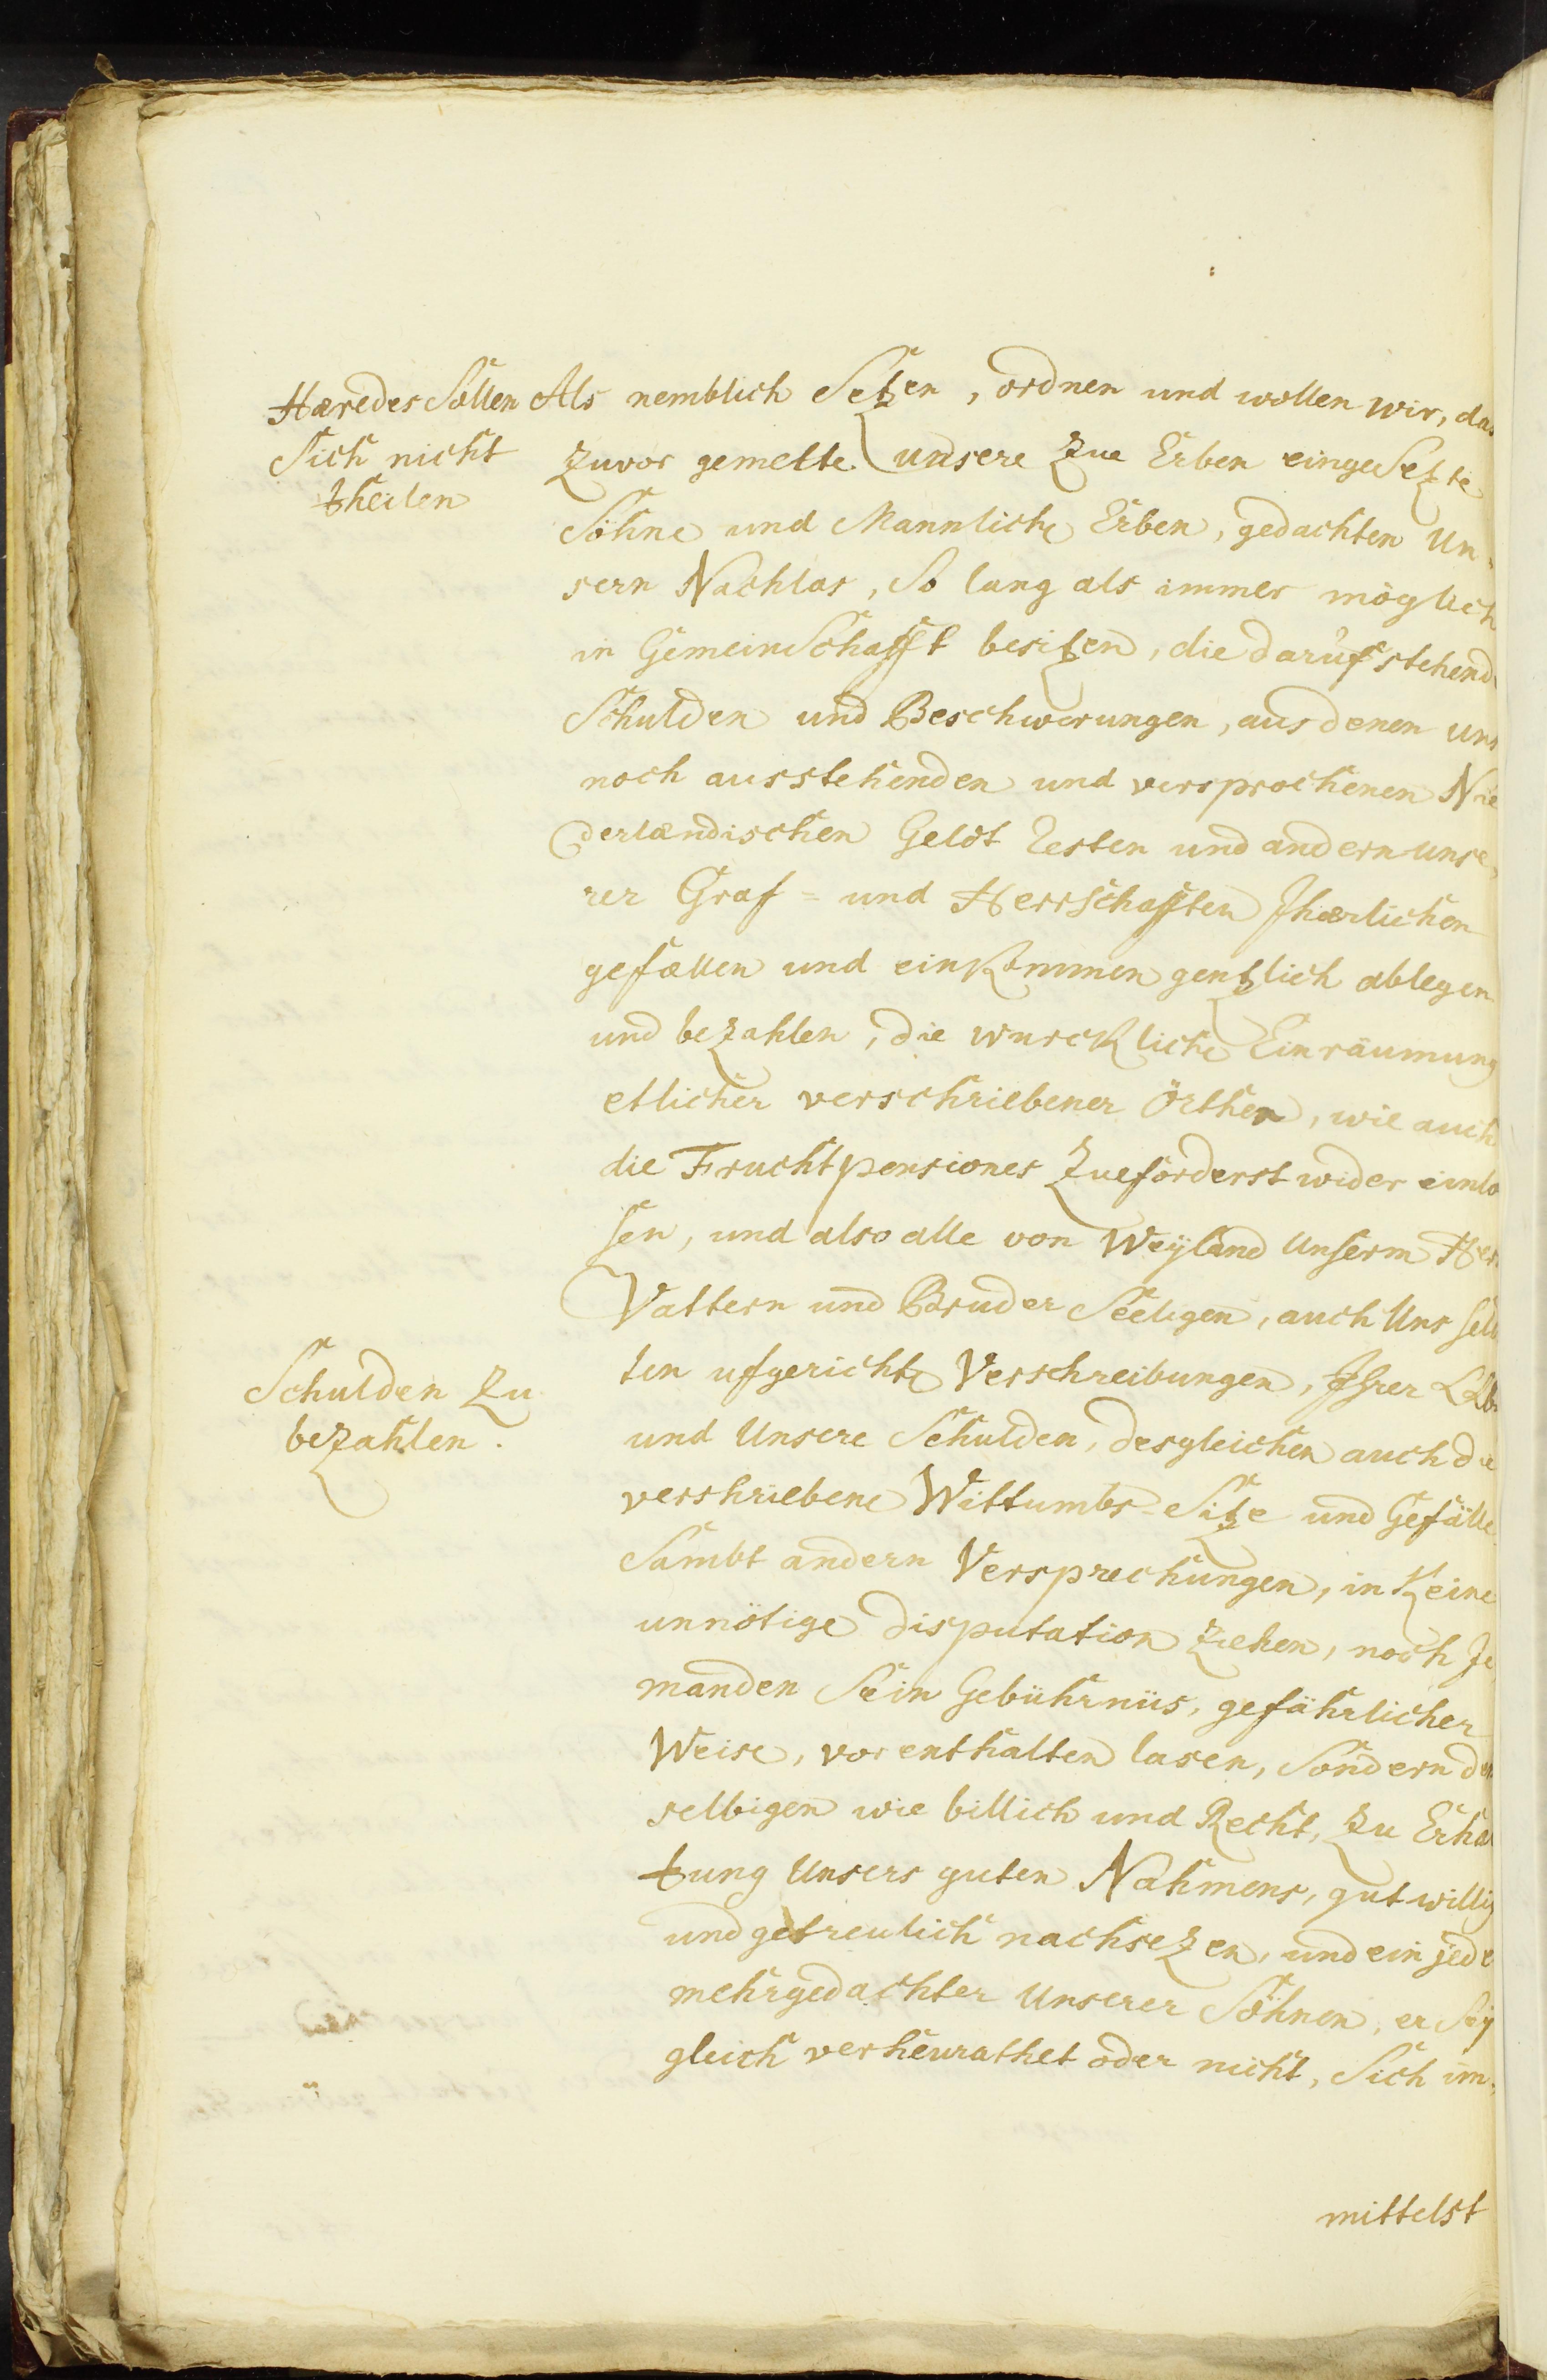 Hæredes Sollen
Sich nicht
theilen
Als nemblich Setzen, ordnen und wollen wir, das
zuvor gemelte unsere zue Erben eingeSetzte
Söhne und Mannliche Erben, gedachten Un-
sern Nachlas, So lang als immer möglich
in GemeinSchafft besitzen, die darufstehend
Schulden und Beschwerungen, aus denen uns
noch ausstehenden und versprochenen Nie
derlændischen Geldt Resten und andern unse,
rer Graf= und HerrSchafften Jhærlichen
gefællen und einkommen gentzlich ablegen
und bezahlen, die wurckliche Einräumung
etlicher verschriebener Örther, wie auch
die Fruchtpensiones zueforderst wider einlo
sen, und also alle von Weyland Unserm Her
Vattern und Bruder Seeligen, auch Uns selb
ten ufgerichte Verschreibungen, Ihrer LLb
Schulden zu
bezahlen.
und Unsere Schulden, desgleichen auch die
vershriebene Wittumbs=Sitze und Gefälle
Sambt andern Versprechungen, in keine
unnötige disputation ziehen, noch Je
manden Sein Gebührnüs, gefährlicher
Weise, vorenthalten lasen, Sondern den
selbigen wie billich und Recht, zu Erhal
tung Unsers guten Nahmens, gutwillig
und getreulich nachsezen, und ein jede
mehrgedachter Unserer Söhnen, er Sey
gleich verheurathet oder nicht, Sich im,
mittelst